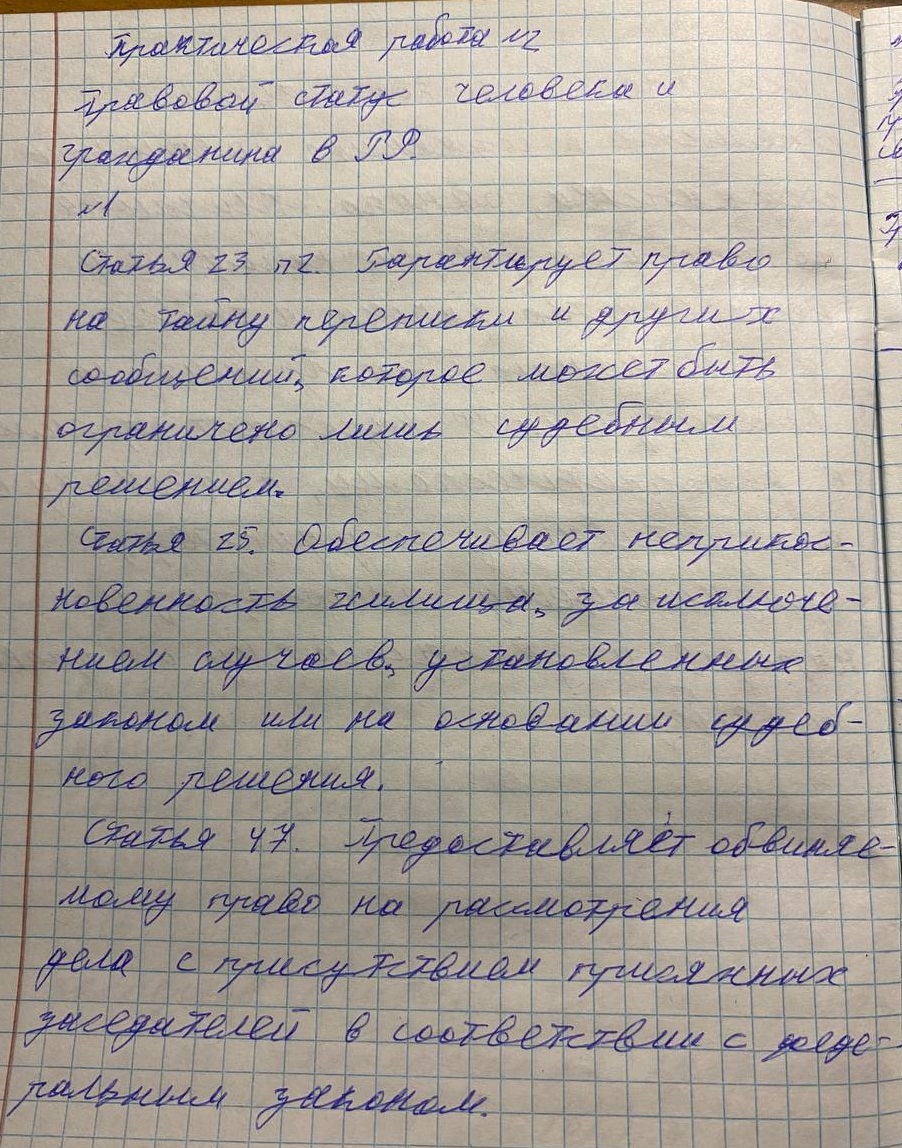 Практическая работа №2
Правовой статус человека и
гражданина в РФ.
№1
Статья 23 п2. Гарантирует право
на тайну переписки и других
сообщений, которое может быть
ограничено лишь судебным
решением.
Статья 25. Обеспечивает неприкос-
новенность жилища, за исключе-
нием случаев, установленных
законом или на основании судеб-
ного решения.
Статья 47. Предоставляет обвиняе-
мому право на рассмотрения
дела с присутствием присяжных
заседателей в соответствии с феде-
ральным законом.